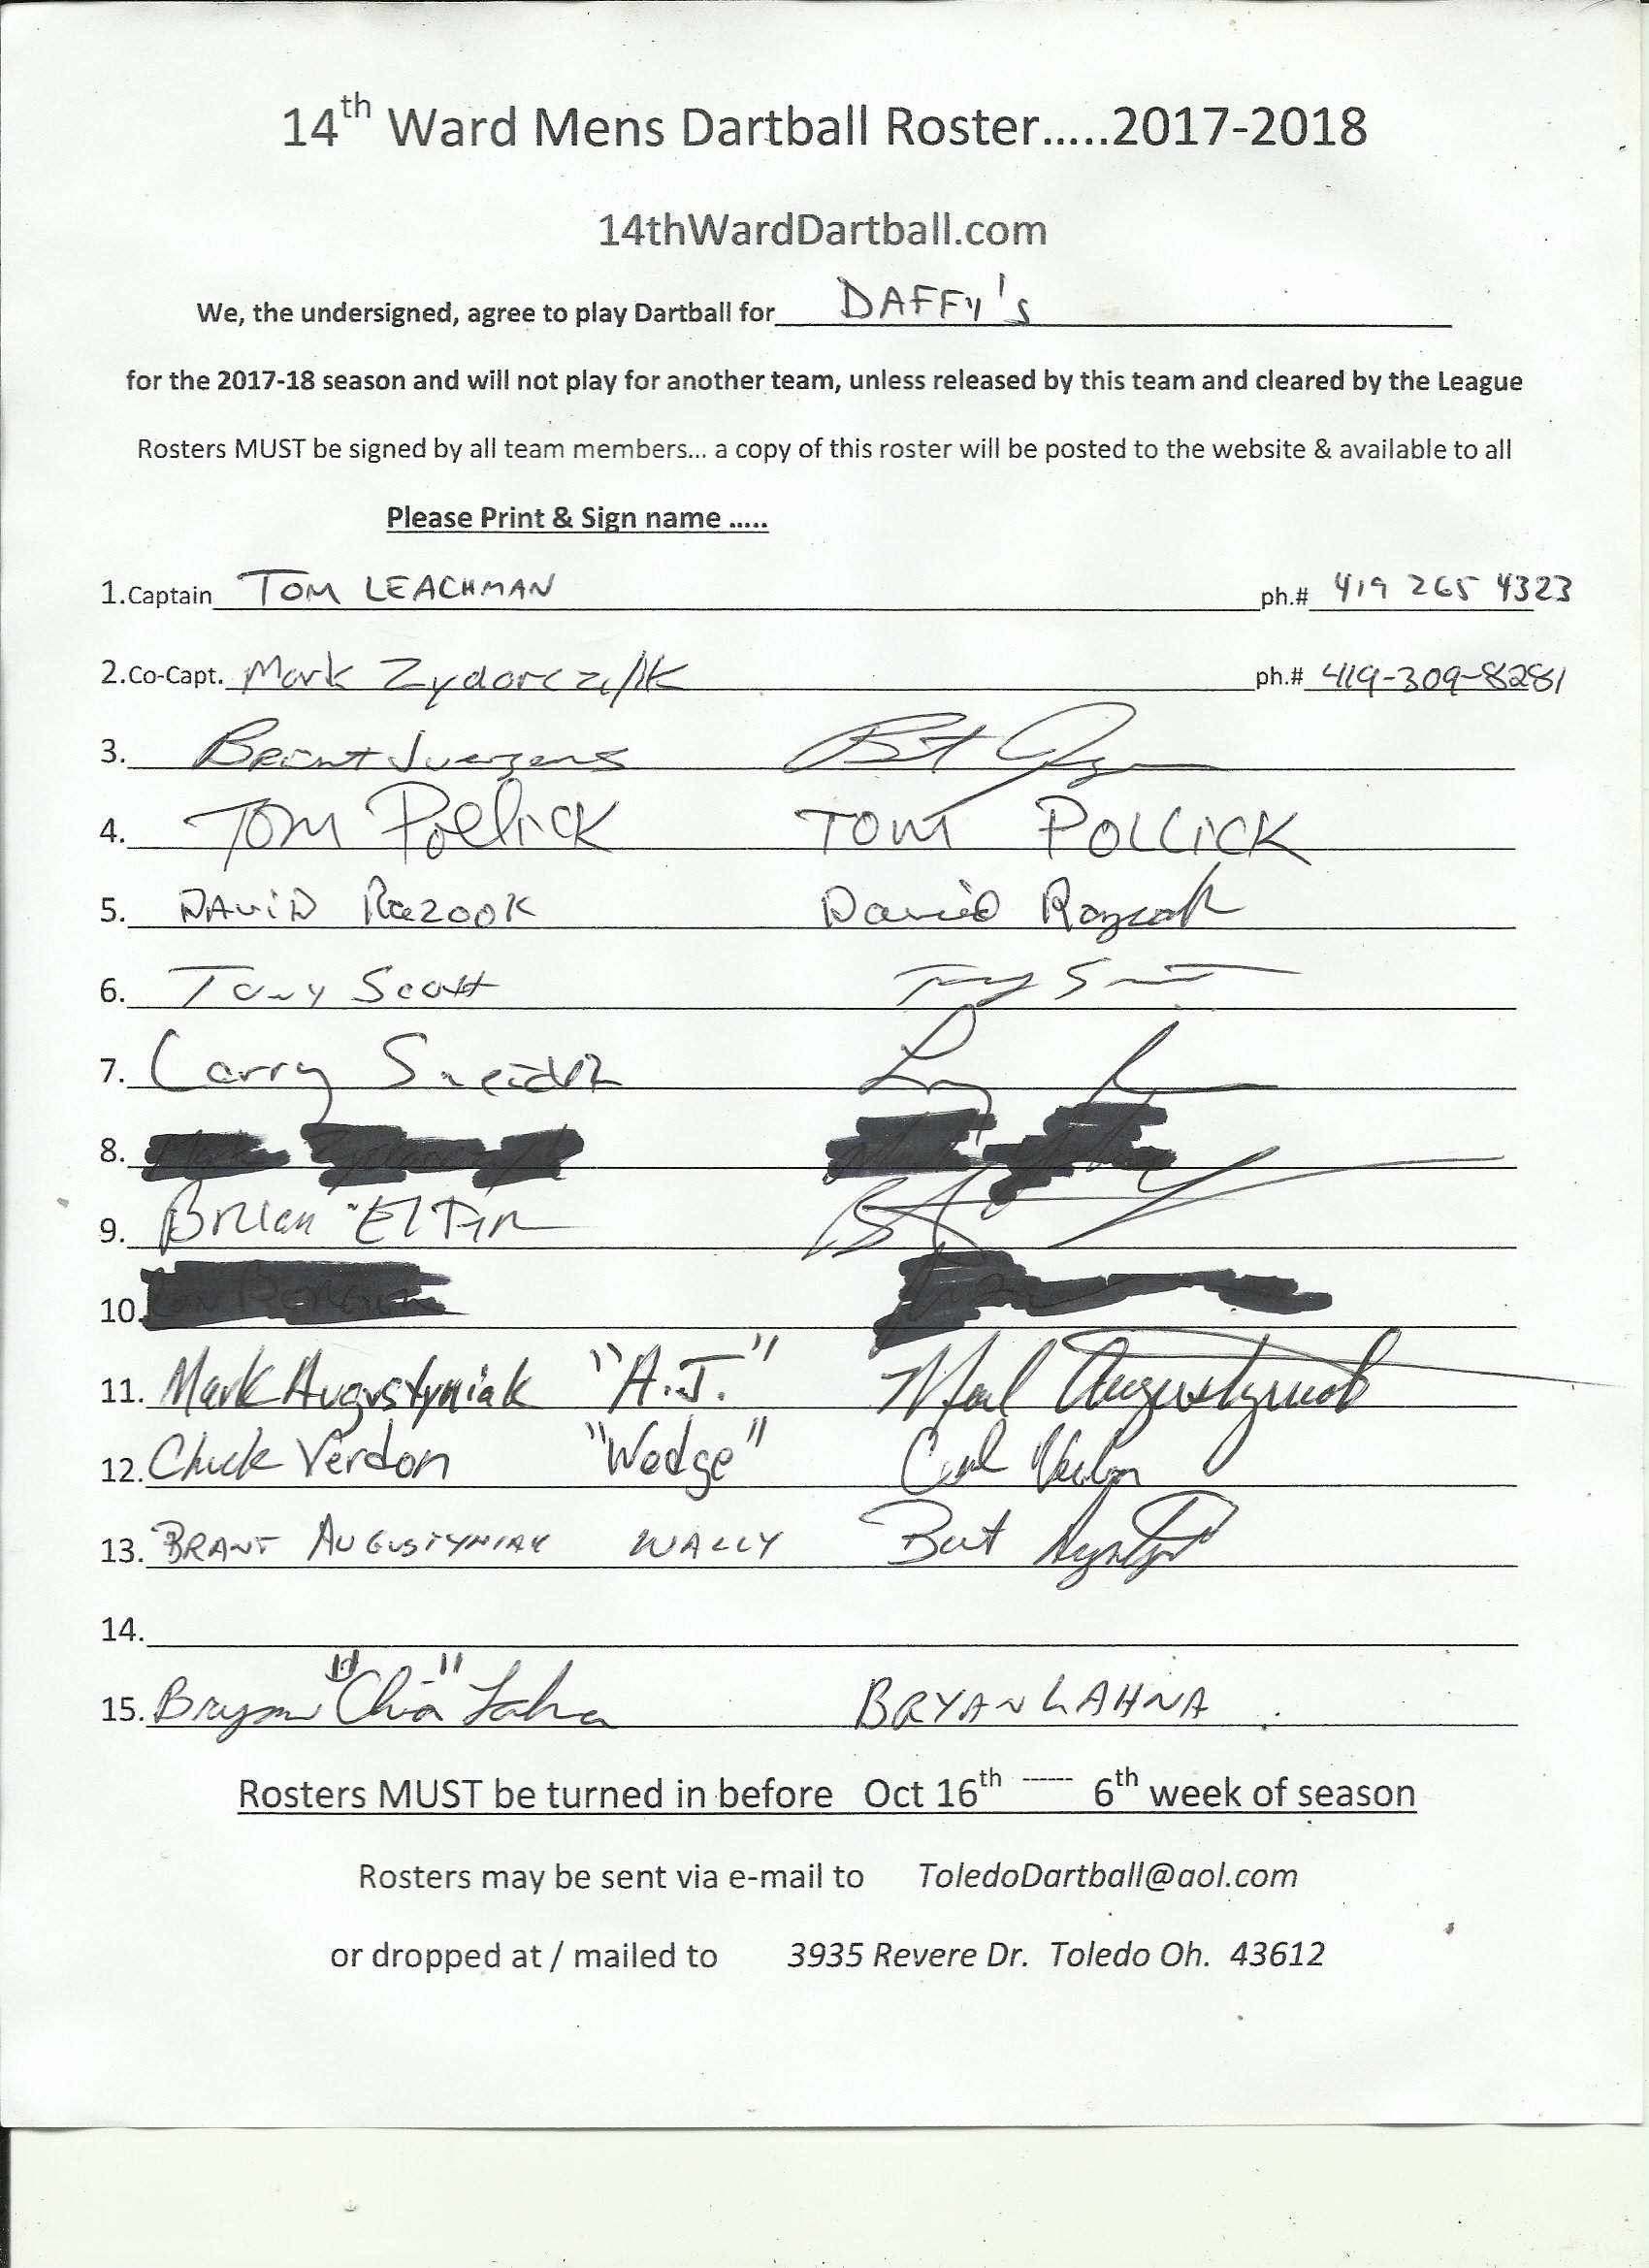 14th Ward Mens Dartball Roster.....2017-2018
14thWardDartball.com
We, the undersigned, agree to play Dartball for DAFFY's
for the 2017-18 season and will not play for another team, unless released by this team and cleared by the League
Rosters MUST be signed by all team members... a copy of this roster will be posted to the website & available to all
Please Print & Sign name .....
1.Captain TOM LEACHMAN ph.# 419 265 4323
2.Co-Capt. Mark Zydorczyk ph.# 419-309-8281
3. Brent Juergens
4. TOM Pollick TOM POLLICK
5. DAVID Razook David Razook
6. Tony Scott Tony Scott
7. Larry Larry
8.
9. Brian
10.
11. Mark Augustyniak "A.J." Mark Augustyniak
12. Chuck Verdon "Wedge" Verdon
13. BRANT AUGUSTYNIAK WALLY
14.
15. Bryan "Chia" Lahna BRYAN LAHNA
Rosters MUST be turned in before Oct 16th ------ 6th week of season
Rosters may be sent via e-mail to ToledoDartball@aol.com
or dropped at / mailed to 3935 Revere Dr. Toledo Oh. 43612